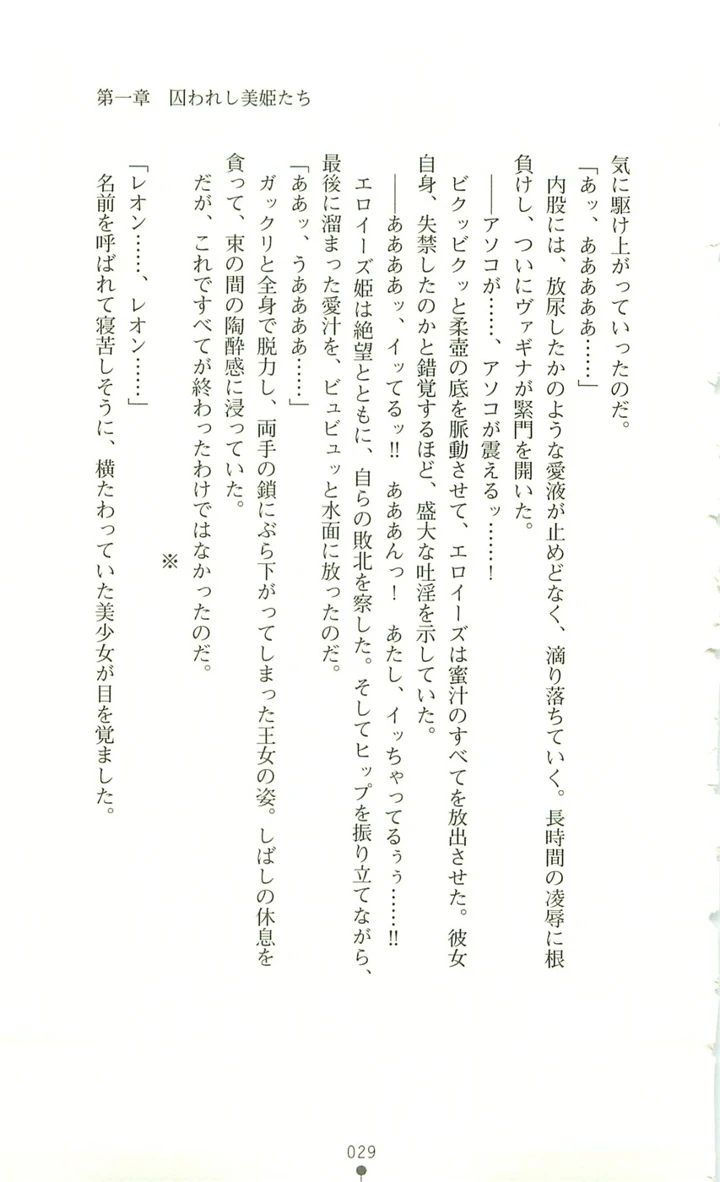 第一章　囚われし美姫たち
気に駆け上がっていったのだ。
「あッ、あああああ……」
内股には、放尿したかのような愛液が止めどなく、滴り落ちていく。長時間の凌辱に根
負けし、ついにヴァギナが緊門を開いた。
――アソコが……、アソコが震えるッ……！
ビクッビクッと柔壺の底を脈動させて、エロイーズは蜜汁のすべてを放出させた。彼女
自身、失禁したのかと錯覚するほど、盛大な吐淫を示していた。
――ああああッ、イッてるッ!!　あああんっ！　あたし、イッちゃってるぅぅ……!!
エロイーズ姫は絶望とともに、自らの敗北を察した。そしてヒップを振り立てながら、
最後に溜まった愛汁を、ビュビュッと水面に放ったのだ。
「ああッ、うああああ……」
ガックリと全身で脱力し、両手の鎖にぶら下がってしまった王女の姿。しばしの休息を
貪って、束の間の陶酔感に浸っていた。
だが、これですべてが終わったわけではなかったのだ。
※
「レオン……、レオン……」
名前を呼ばれて寝苦しそうに、横たわっていた美少女が目を覚ました。
029